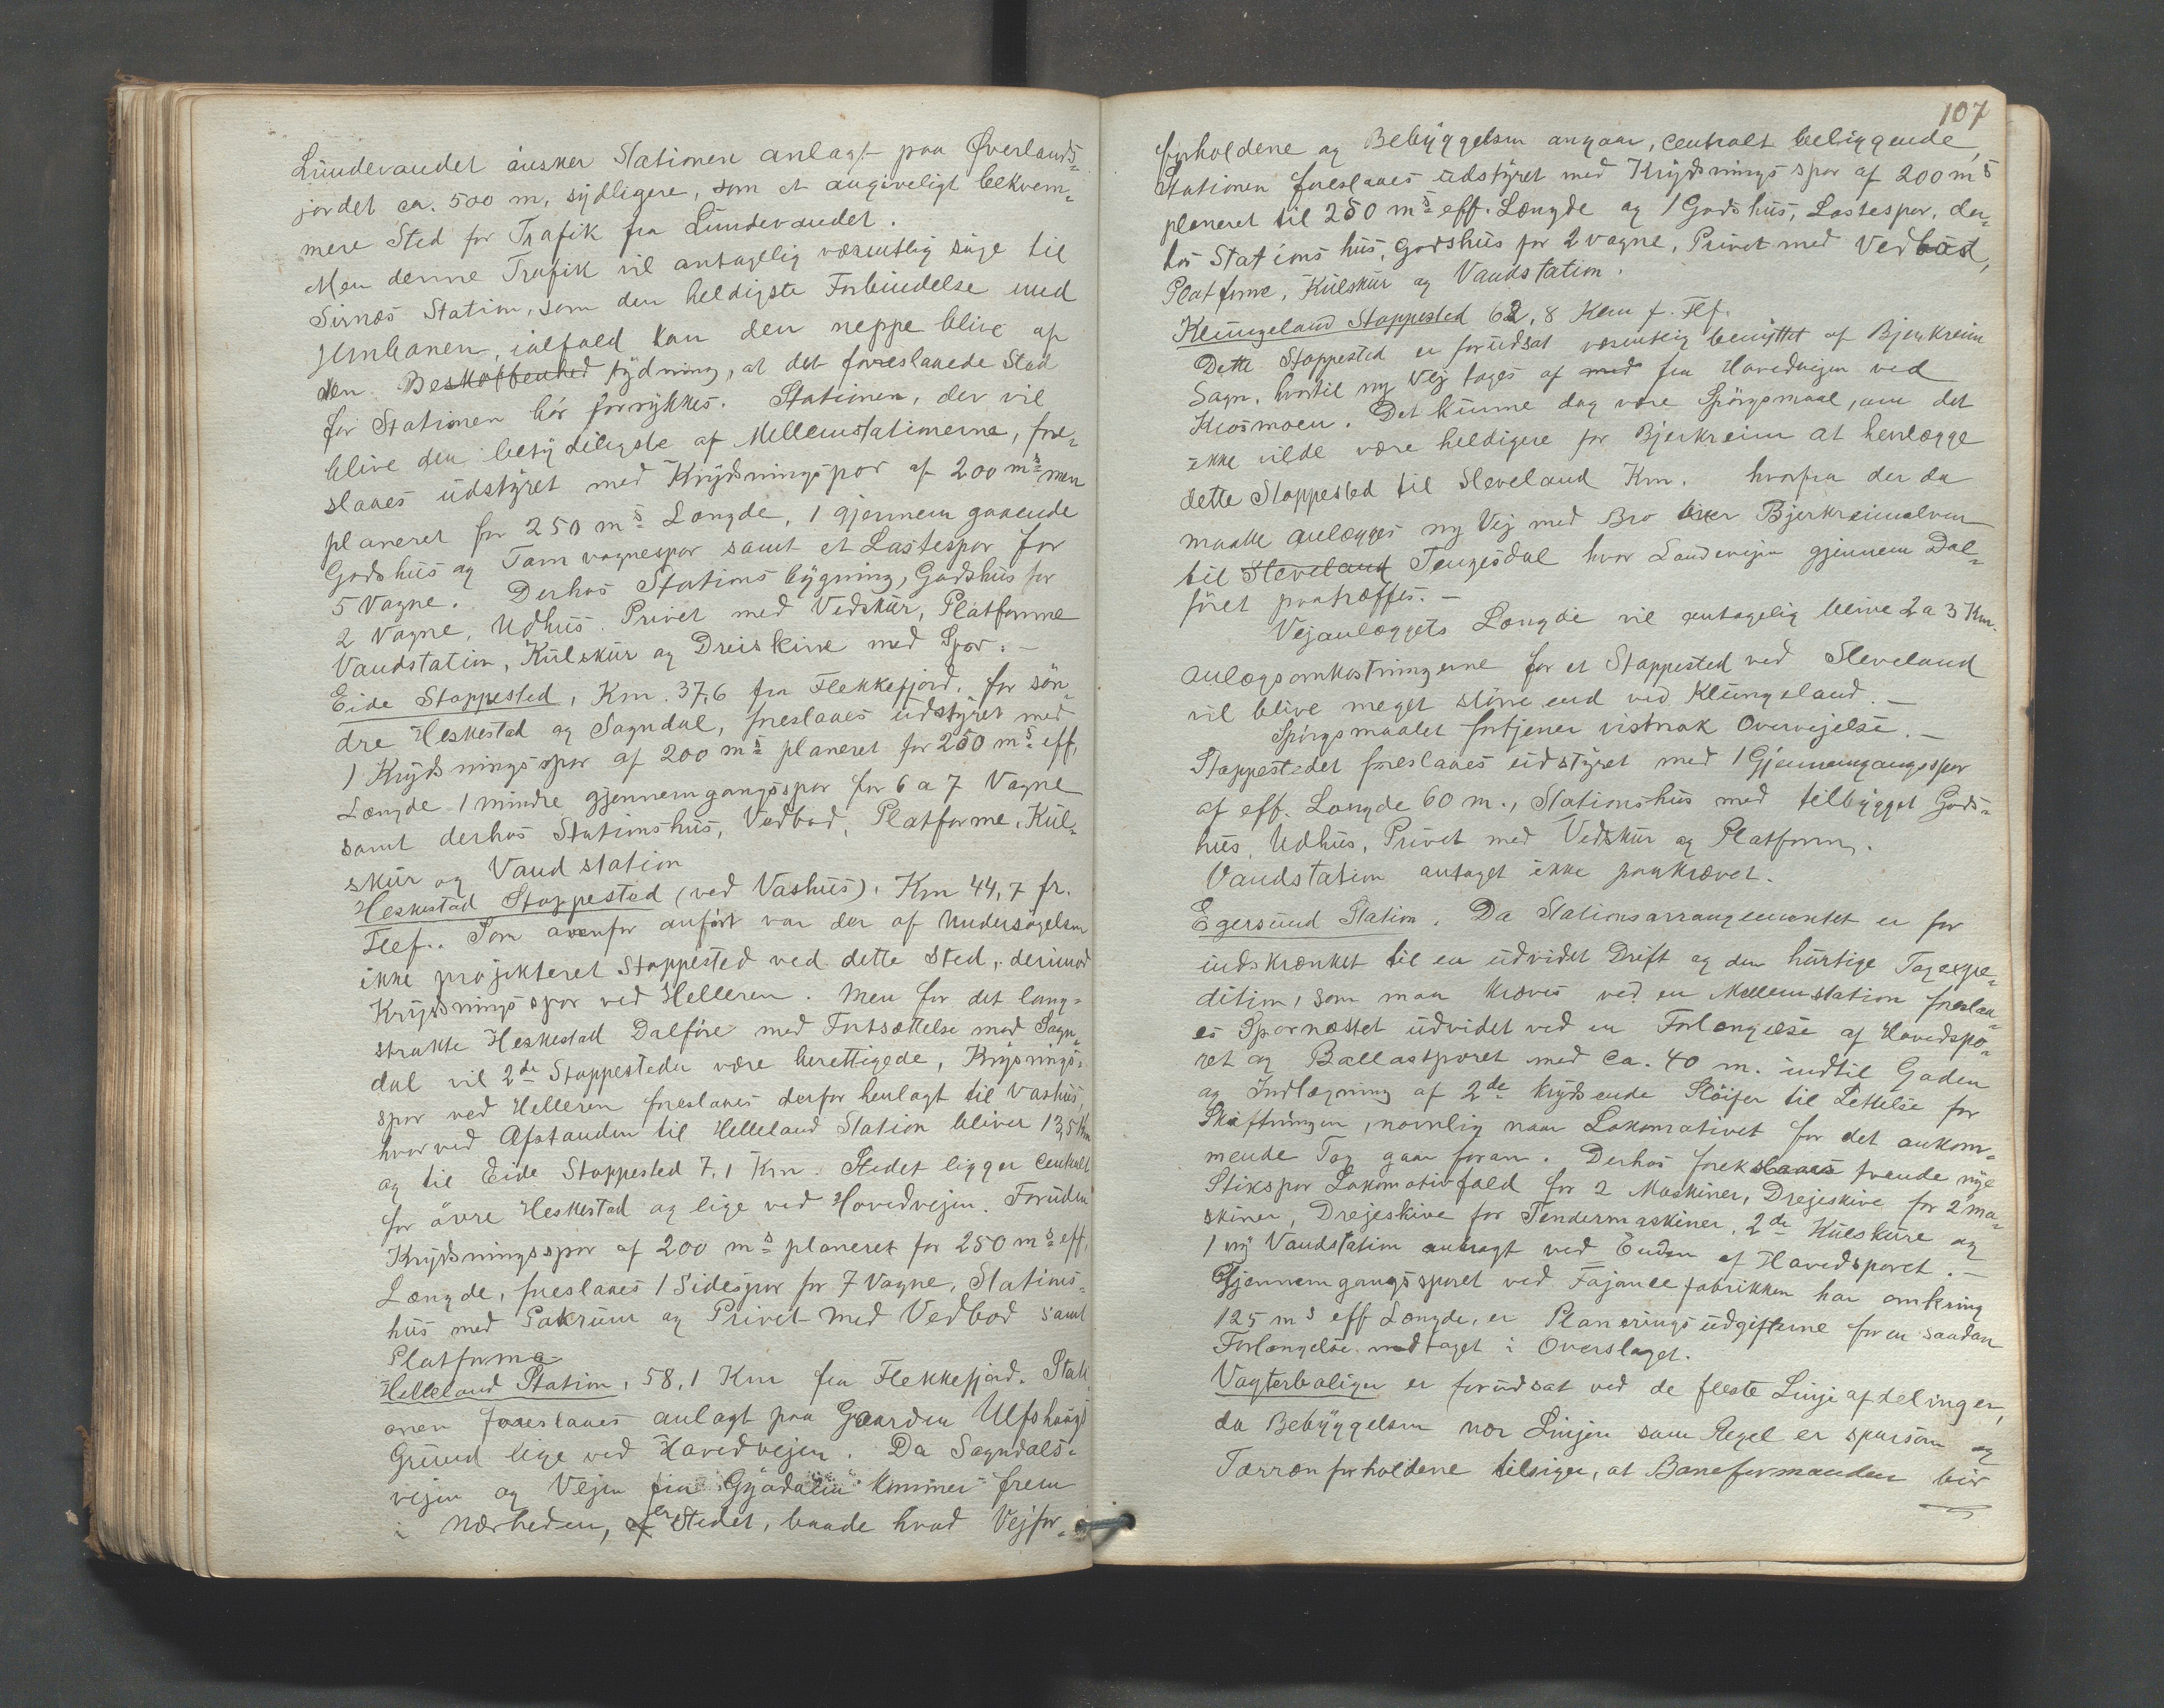 Lundevandet ønsker Stationen anlagt paa Øverlands-
jordet ca. 500 m, sydligere, som et angiveligt bekvem-
mere Sted for Trafik fra Lundevandet.
Men denne Trafik vil antagelig væsentlig søge til
Sirnæs Station, som den heldigste Forbindelse med
Jernbanen, ialfald kan den neppe blive af
den Beskaffenhed tydning, at det foreslaaede Sted
for Stationen bör forrykkes. Stationen, der vil
blive den betydeligste af Mellemstationerne, fore-
slaaes üdstyret med Krydsningsspor af 200 ms men
planeret for 250 ms Længde, 1 gjennemgaaende
Godshüs og Tomvognespor samt et Lastespor for
5 Vogne. Derhos Stationsbygning, Godshüs for
2 Vogne, Udhüs Privet med Vedskür, Platforme
Vandstation, Külskür og Dreiskive med Spor. –
Eide Stoppested, Km. 37,6 fra Flekkefjord, for søn-
dre Heskestad og Sogndal, foreslaaes üdstyret med
1 Krydsningsspor af 200 ms planeret for 250 ms eff.
Længde 1 mindre gjennemgangsspor for 6 a 7 Vogne
samt derhos Stationshüs, Vedbod, Platforme, Kül-
skür og Vandstation
Heskestad Stoppested (ved Vashüs), Km 44,7 fr.
Flef.. Som ovenfor anført var der af Undersøgelsen
ikke projekteret Stoppested ved dette Sted, derimod
Krydsningsspor ved Helleren. Men for det lang-
strakte Heskestad Dalføre med Fortsættelse mod Sogn-
dal vil 2de Stoppesteder være berettigede, Krysnings-
spor ved Helleren foreslaaes derfor henlagt til Vashüs,
hvorved Afstanden til Helleland Station bliver 13,5 Km
og til Eide Stoppested 7,1 Km. Stedet ligger centralt
for øvre Heskestad og lige ved Hovedvejen. Foruden
Krydsningsspor af 200 ms planeret for 250 ms eff.
Længde, foreslaaes 1 Sidespor for 7 Vogne, Stations-
hüs med Pakrüm og Privet med Vedbod samt
Platforme
Helleland Station, 58,1 Km fra Flekkefjord. Stati-
onen foreslaaes anlagt paa Gaarden Ulfshaugs
Grund lige ved Hovedvejen. Da Sogndals-
vejen og Vejen fra Gyadalen kommer frem
i Nærheden, af er Stedet, baade hvad Vejfor-
107
forholdene og Bebyggelsen angaar, centralt beliggende,
Stationen foreslaaes üdstyret med Krydsningsspor af 200 ms
planeret til 250 ms eff. Længde og 1 Godshüs, Lastespor, der-
hos Stationshüs, Godshüs for 2 vogne, Privet med Vedbod,
Platforme, Külskür og Vandstation.
Klungeland Stoppested 62,8 Km f. Flf.
Dette Stoppested er forüdsat væsentlig benyttet af Bjerkreim
Sogn, hvortil ny Vej tages af med fra Hovedvejen ved
Krosmoen. Det kunne dog være Spörgsmaal, om det
ikke vilde være heldigere for Bjerkreim at henlægge
dette Stoppested til Sleveland Km. hvorfra der da
maatte anlægges ny Vej med Bro over Bjerkreimselven
til Sleveland Tengesdal hvor Landevejen gjennem Dal-
föret paatræffes. –
Vejanlæggets Længde vil antagelig blive 2 a 3 Km.
Anlægsomkostningerne for et Stoppested ved Sleveland
vil blive meget större end ved Klüngeland. –
Spörgsmaalet fortjener vistnok Overvejelse. –
Stoppestedet foreslaaes üdstyret med 1 Gjennemgangsspor
af eff. Længde 60 m., Stationshüs med tilbygget Gods-
hüs, Udhüs, Privet med Vedskür og Platform.
Vandstation antaget ikke paakrævet.
Egersund Station. Da Stationsarrangementet er for
indskrænket til en üdvidet Drift og den hürtige Togexpe-
dition, som maa kræves ved en Mellemstation foreslaa-
es Spornættet üdvidet ved en Forlængelse af Hovedspo-
ret og Ballastsporet med ca. 40 m. indtil Gaden
og Indlægning af 2de krydsende Slöifer til Lettelse for
Skiftningen, navnlig naar Lokomotivet for det ankom-
mende Tog gaar foran. Derhos foreslaaes tvende nye
Stikspor Lokomotivstald for 2 Maskiner, Drejeskive for 2 ma-
skiner, Drejeskive for Tendermaskiner, 2de Külsküre og
1 ny Vandstation anbragt ved Enden af Hovedsporet. –
Gjennemgangssporet ved Fajancefabrikken har omkring
125 ms eff Længde, er Planeringsüdgifterne for en saadan
Forlængelse medtaget i Overslaget.
Vogterboliger er forüdsat ved de fleste Linjeafdelinger,
da Bebyggelsen nær Linjen som Regel er sparsom og
Tærrænforholdene tilsiger, at Baneformanden bör